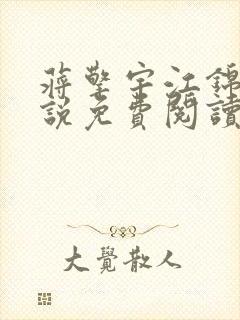 蔣擎宇江錦
說免費閱讀
大覺散人